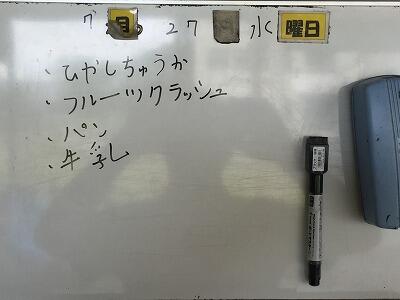 7月27 水曜日
・ひやしちゅうか
・フルーツクラッシュ
・パン
・牛乳